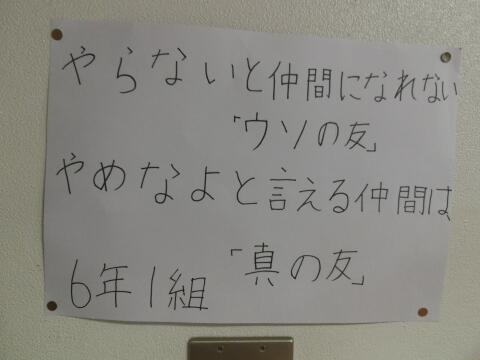 やらないと仲間になれない
「ウソの友」
やめなよと言える仲間は
「真の友」
6年1組